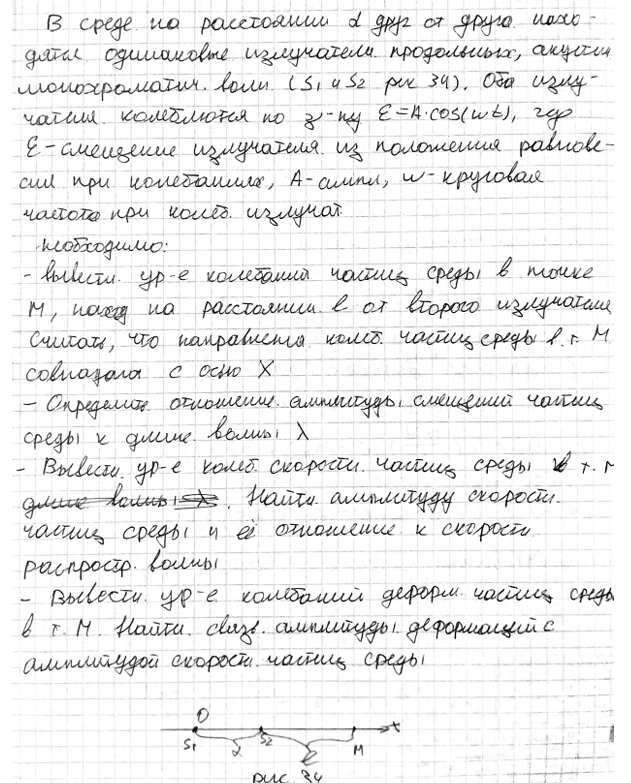 В среде на расстоянии d друг от друга нахо-
дятся одинаковые излучатели продольных, акустич
монохроматич. волн (S₁ и S₂ рис 34). Оба излу-
чателя колеблются по з-ну Ɛ=A·cos(ωt), где
Ɛ-смещение излучателя из положения равнове-
сия при колебаниях, A-ампл, ω-круговая
частота при колеб. излучат.
Необходимо:
- вывести ур-е колебаний частиц среды в точке
M, наход на расстоянии ℓ от второго излучателя
Считать, что направления колеб. частиц среды в т. M
совпадала с осью X
- Определить отношение амплитуды смещений частиц
среды к длине волны λ
- Вывести ур-е колеб. скорости частиц среды в т. M
длине волны λ. Найти амплитуду скорости
частиц среды и её отношение к скорости
распростр. волны
- Вывести ур-е колебаний деформ. частиц среды
в т. M. Найти связь амплитуды деформаций с
амплитудой скорости частиц среды
O x
S₁ d S₂ ℓ M
рис. 34